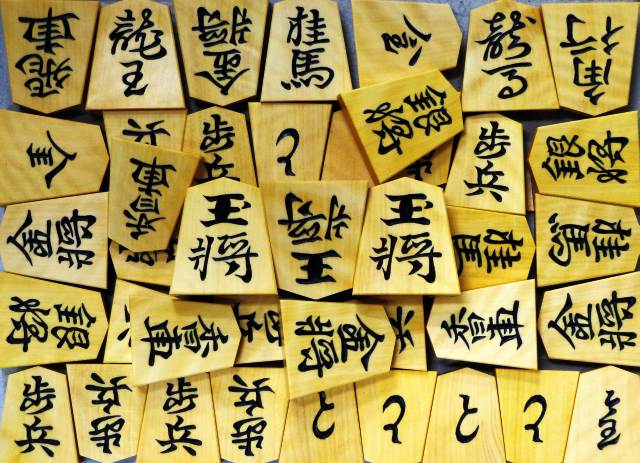 飛車
龍王
金将
桂馬
龍馬
角行
銀将
歩兵
と
歩兵
銀将
香車
金将
王将
王将
王将
桂馬
桂馬
銀将
香車
金将
香車
金将
歩兵
歩兵
歩兵
歩兵
と
と
と
と